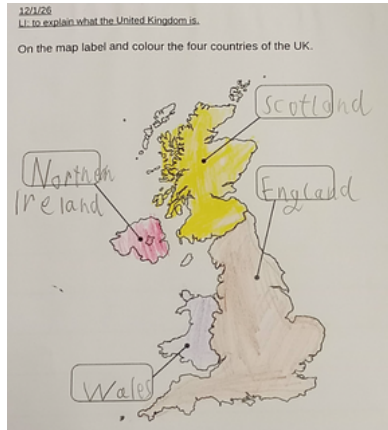 12/1/26
LI: to explain what the United Kingdom is.
On the map label and colour the four countries of the UK.
Scotland
Northern
Ireland
England
Wales